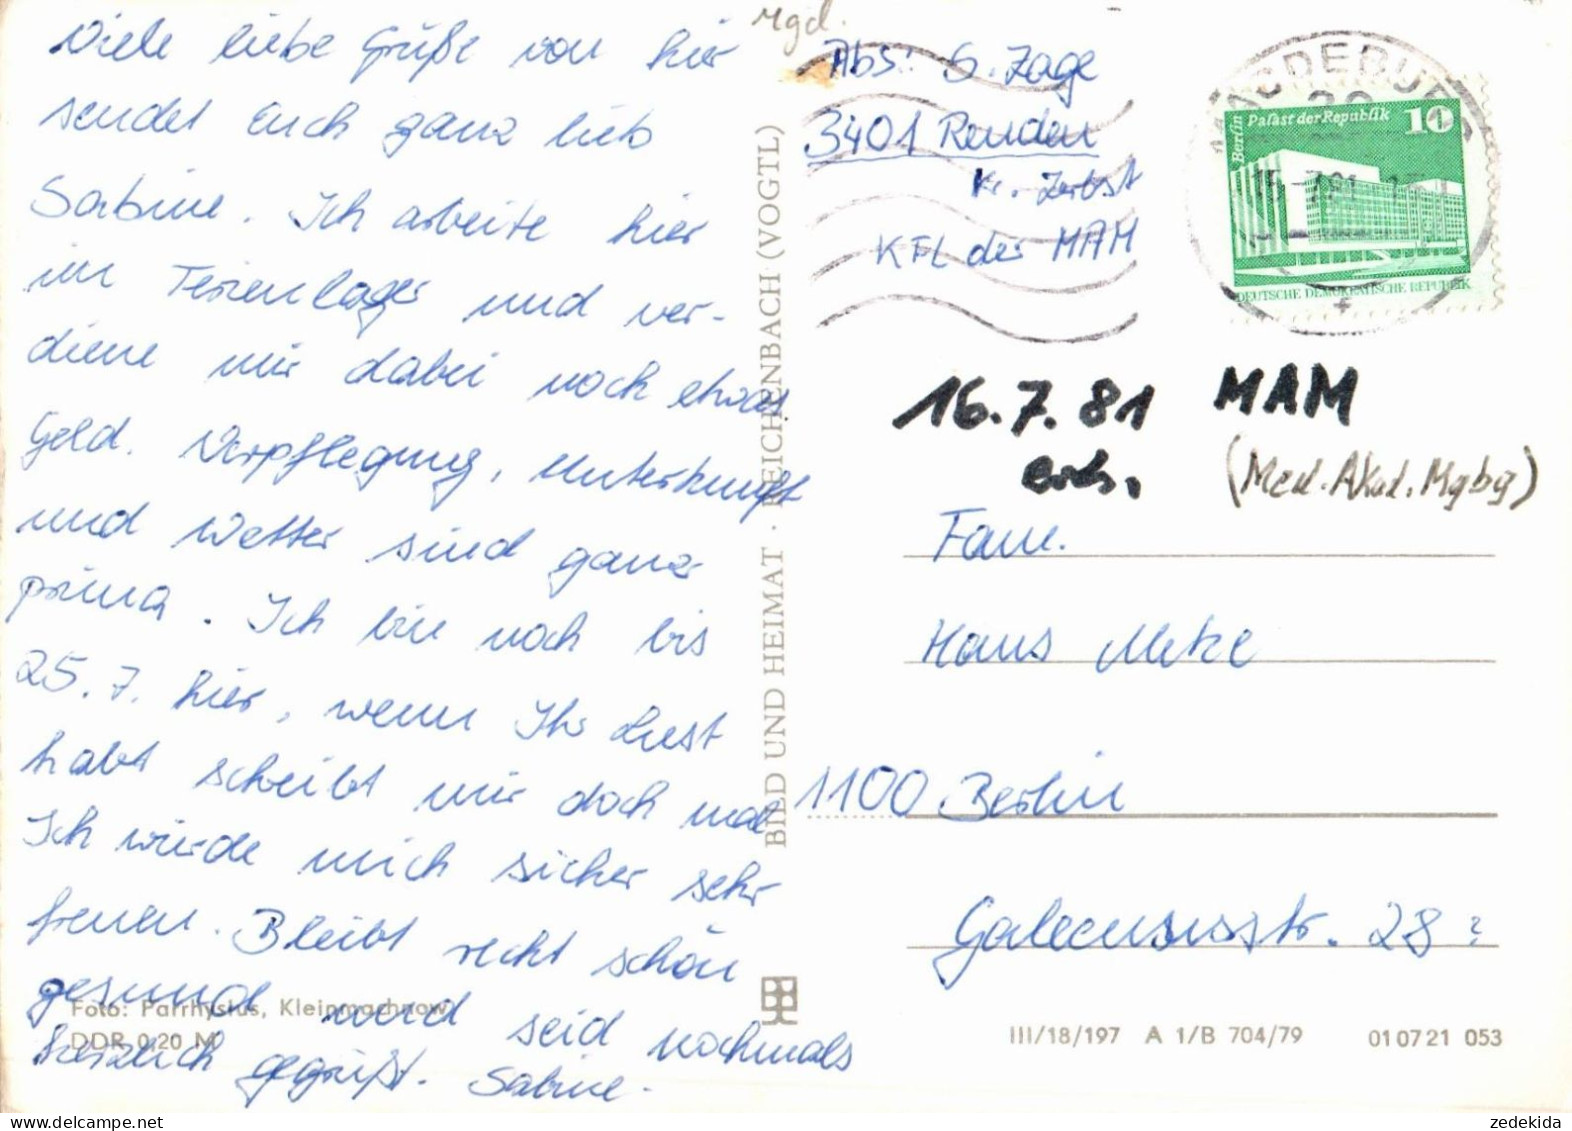 Viele liebe Grüße von hier
sendet Euch ganz lieb
Sabine. Ich arbeite hier
im Ferienlager und ver-
diene mir dabei noch etwas
Geld. Verpflegung, Unterkunft
und Wetter sind ganz
prima. Ich bin noch bis
25.7. hier, wenn Ihr Lust
habt scheibt mir doch mal
Ich würde mich sicher sehr
freuen. Bleibt recht schön
gesund und seid nochmals
herzlich gegrüßt. Sabine.
Foto: Parrhysius, Kleinmachnow
DDR 0,20 M
BILD UND HEIMAT · REICHENBACH (VOGTL)
Mgd.
Abs: S. Zage
3401 Reuden
Kr. Zerbst
KFL der MAM
MAGDEBURG
15-7.81
Berlin Palast der Republik 10
DEUTSCHE DEMOKRATISCHE REPUBLIK
16.7.81 MAM
erh. (Med. Akad. Mgbg)
Fam.
Hans Metze
1100 Berlin
28?
III/18/197 A 1/B 704/79 01 07 21 053
zedekida